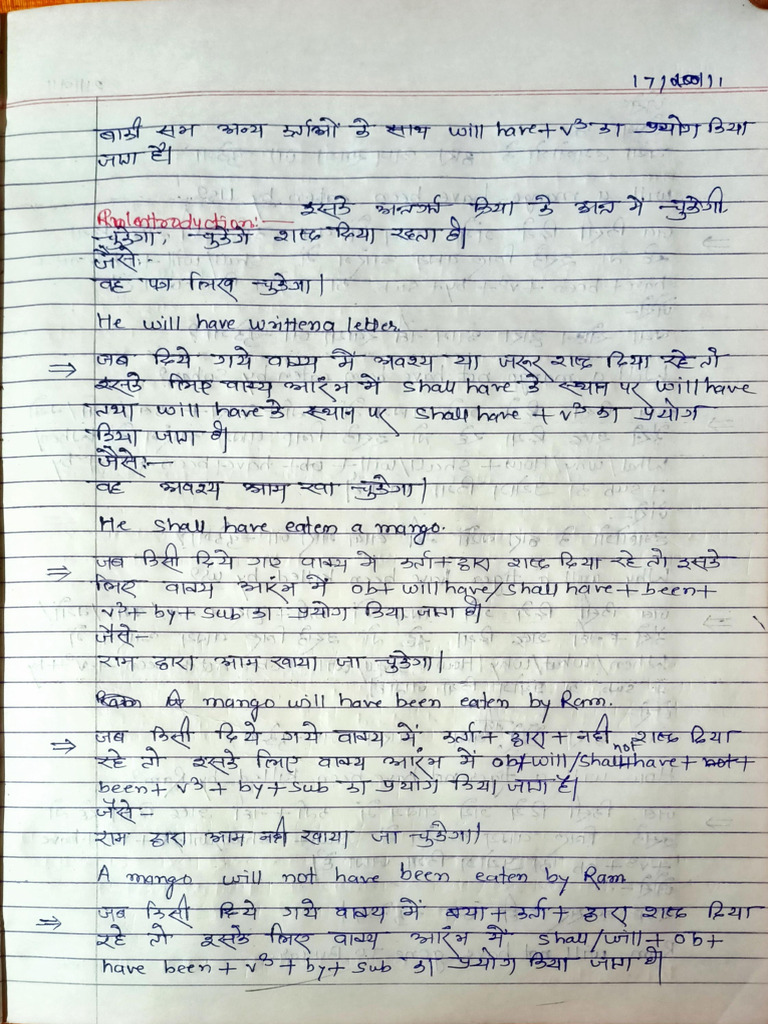 बाकी सभ अन्य कर्ताओं के साथ will have + v³ का प्रयोग किया
जाता है।
Introduction:— इसके अन्तर्गत क्रिया के अन्त में चुकेगी,
चुकेगा, चुकेगें शब्द दिया रहता है।
जैसे:-
वह पत्र लिख चुकेगा।
He will have written a letter.
⇒ जब दिये गये वाक्य में अवश्य या जरूर शब्द दिया रहे तो
इसके लिए वाक्य आरंभ में shall have के स्थान पर will have
तथा will have के स्थान पर shall have + v³ का प्रयोग
किया जाता है।
जैसे:-
वह अवश्य आम खा चुकेगा।
He shall have eaten a mango.
⇒ जब किसी दिये गए वाक्य में कर्ता + द्वारा शब्द दिया रहे तो, इसके
लिए वाक्य आरंभ में ob + will have/shall have + been +
v³ + by + sub का प्रयोग किया जाता है।
जैसे-
राम द्वारा आम खाया जा चुकेगा।
A mango will have been eaten by Ram.
⇒ जब किसी दिये गये वाक्य में कर्ता + द्वारा + नही शब्द दिया
रहे तो इसके लिए वाक्य आरंभ में ob + will/shall not have +
been + v³ + by + sub का प्रयोग किया जाता है।
जैसे-
राम द्वारा आम नही खाया जा चुकेगा।
A mango will not have been eaten by Ram
⇒ जब किसी दिये गये वाक्य में क्या + कर्ता + द्वारा शब्द दिया
रहे तो इसके लिए वाक्य आरंभ में shall/will + ob +
have been + v³ + by + sub का प्रयोग किया जाता है।